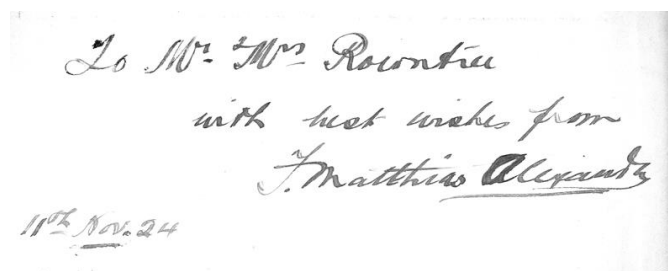 To Mr. & Mrs Rowntree
with best wishes from
F. Matthias Alexander
11th Nov. 24